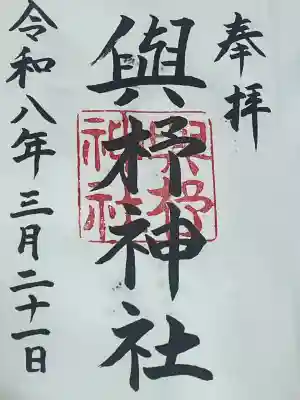 奉拝
與杼神社
與杼神社
令和八年三月二十一日